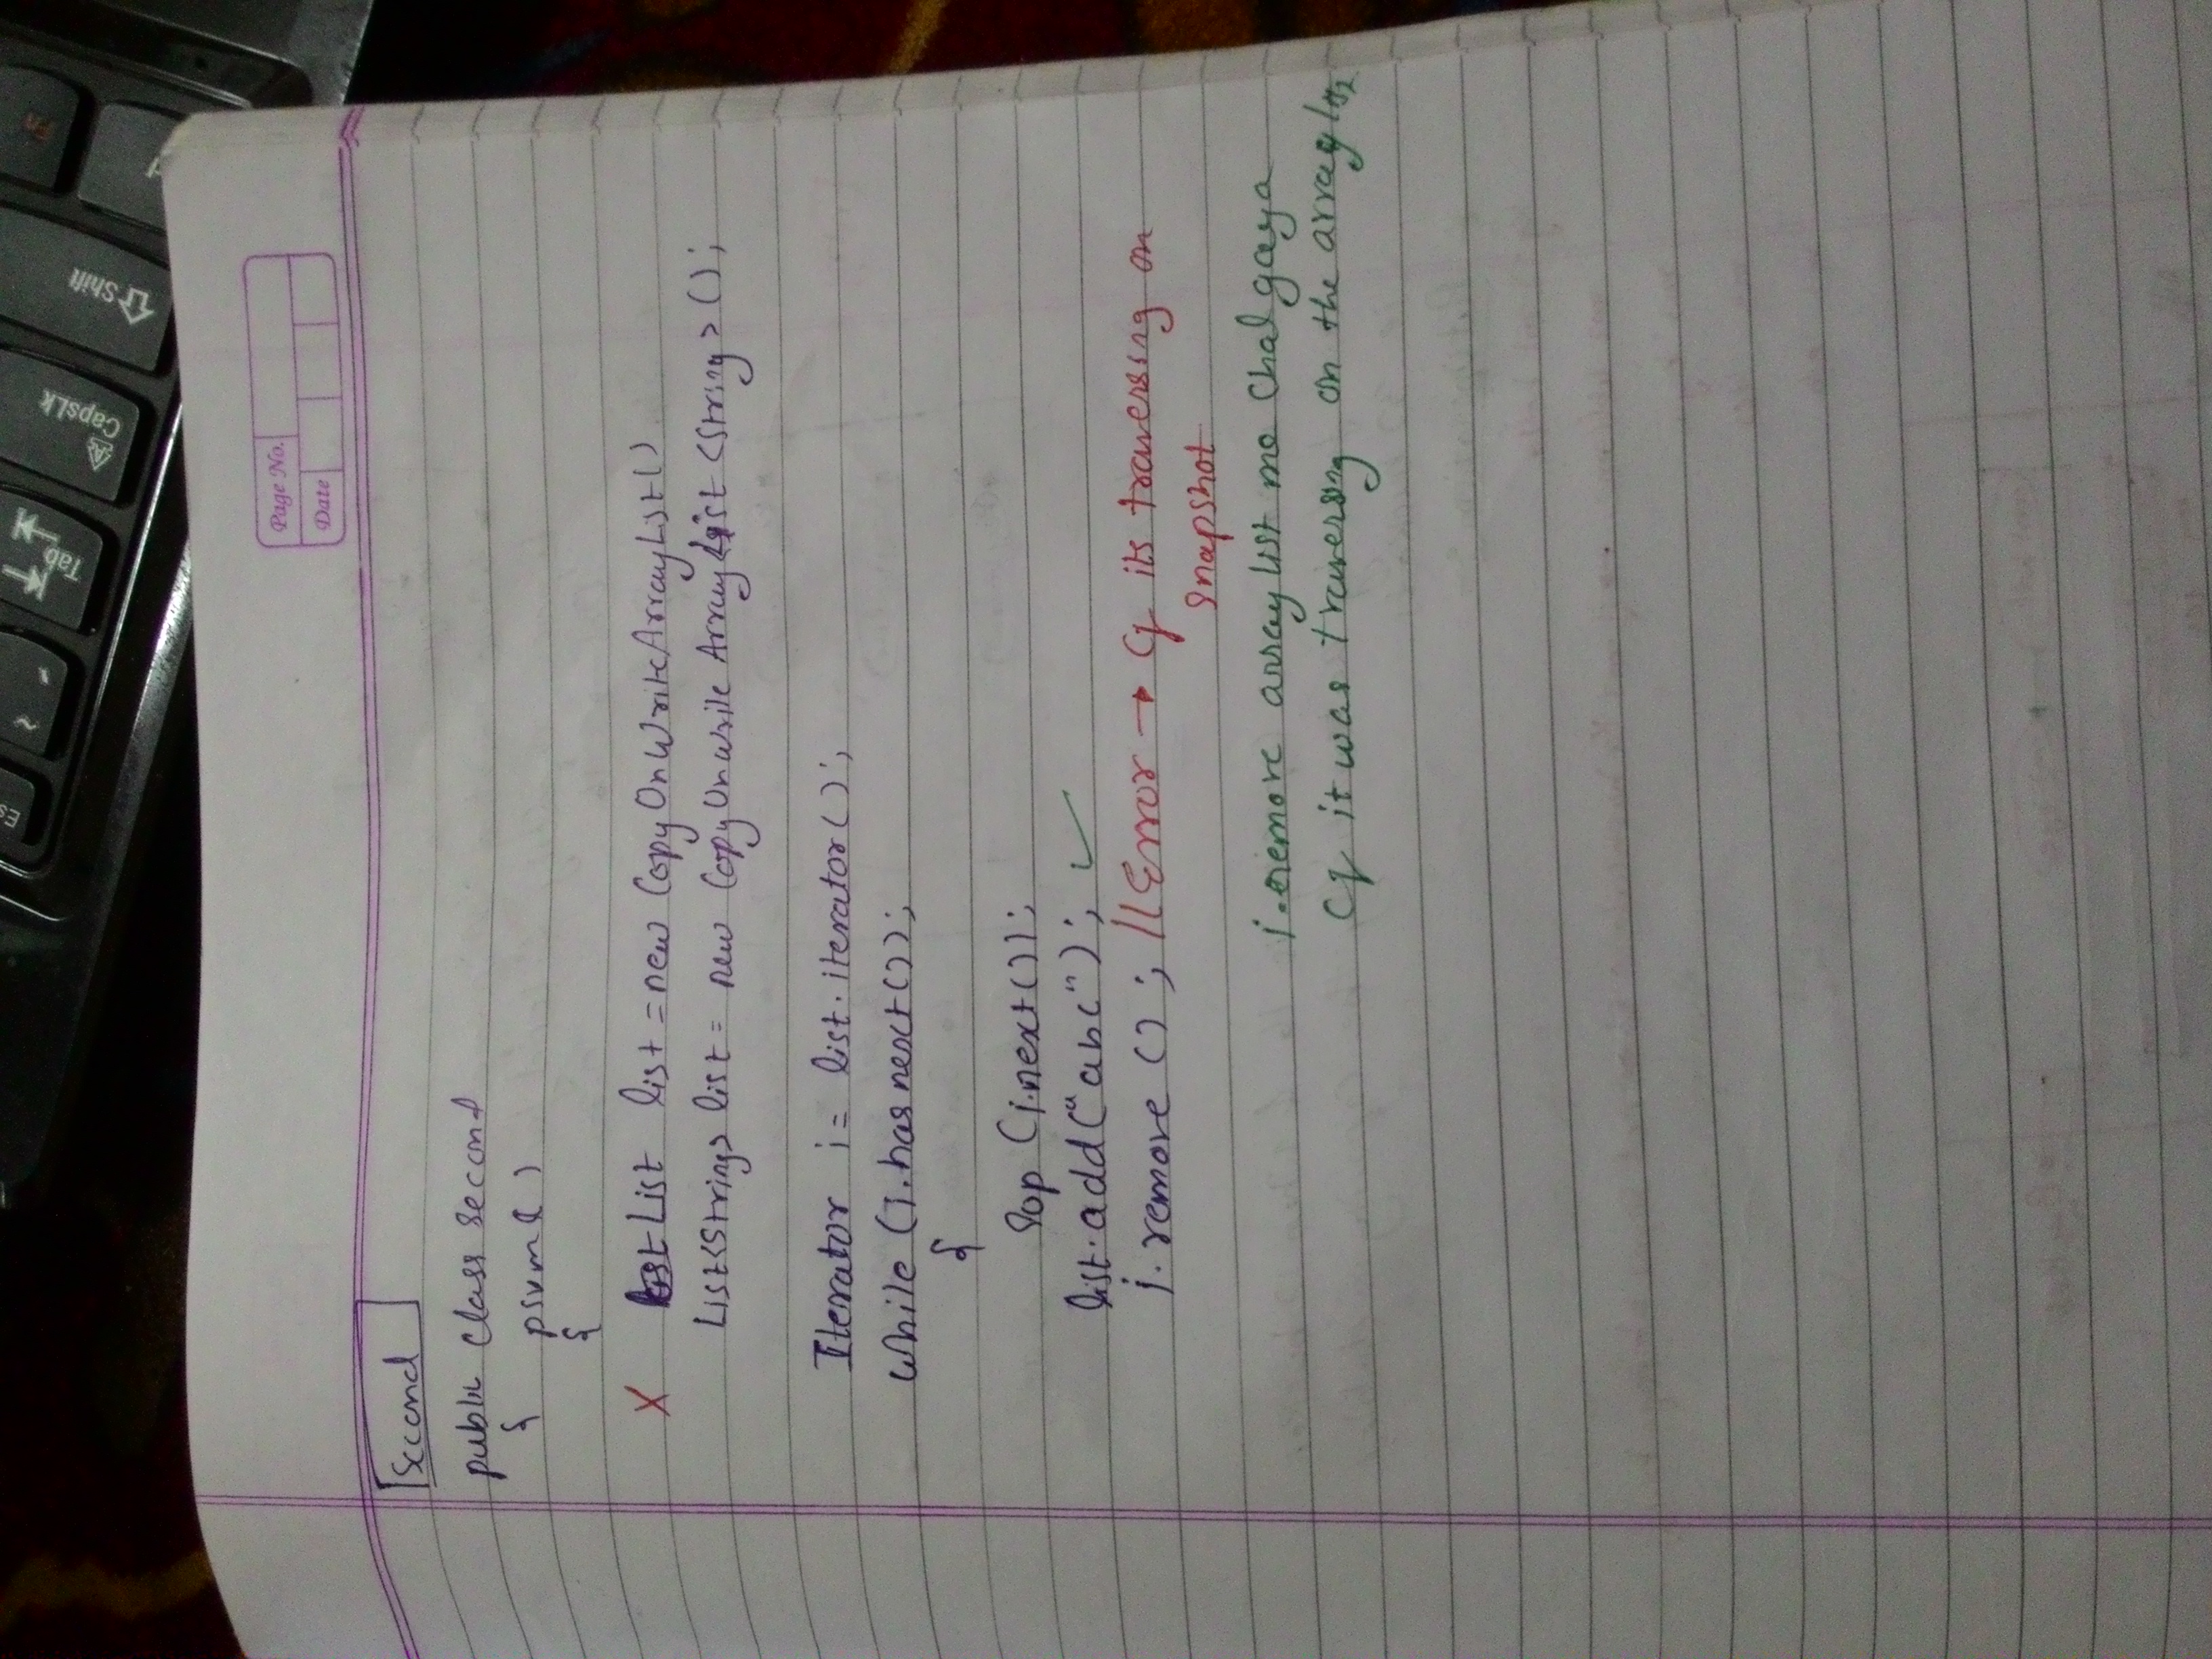 Esc
~
`
Tab
CapsLk
Shift
Fn
Page No.
Date
Second
public class second
{ psvm( )
{
X List list = new CopyOnWriteArrayList()
List<String> list = new CopyOnWrite ArrayList <String> ();
Iterator i = list.iterator();
while (i.hasnext());
{
Sop (i.next());
list.add("abc"); ✓
i.remove () ; //Error → Cz its traversing on
Snapshot
i.remove array list me Chal gaya
Cz it was traversing on the array list